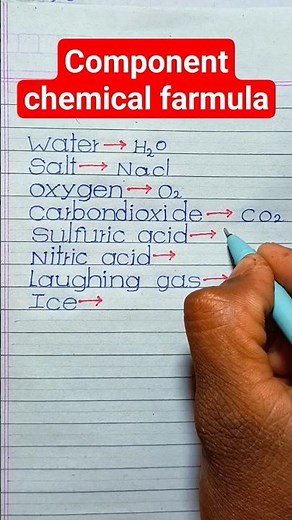 Component
chemical farmula
Water → H₂O
Salt → Nacl
Oxygen → O₂
Carbondioxide → CO₂
Sulfuric acid →
Nitric acid →
Laughing gas →
Ice →